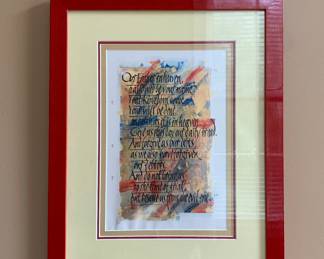 Our Father in heaven,
hallowed be your name.
Your Kingdom come.
Your will be done,
on earth as it is in heaven.
Give us this day our daily bread.
And forgive us our debts,
as we also have forgiven
our debtors.
And do not bring us
to the time of trial,
but rescue us from the evil one.